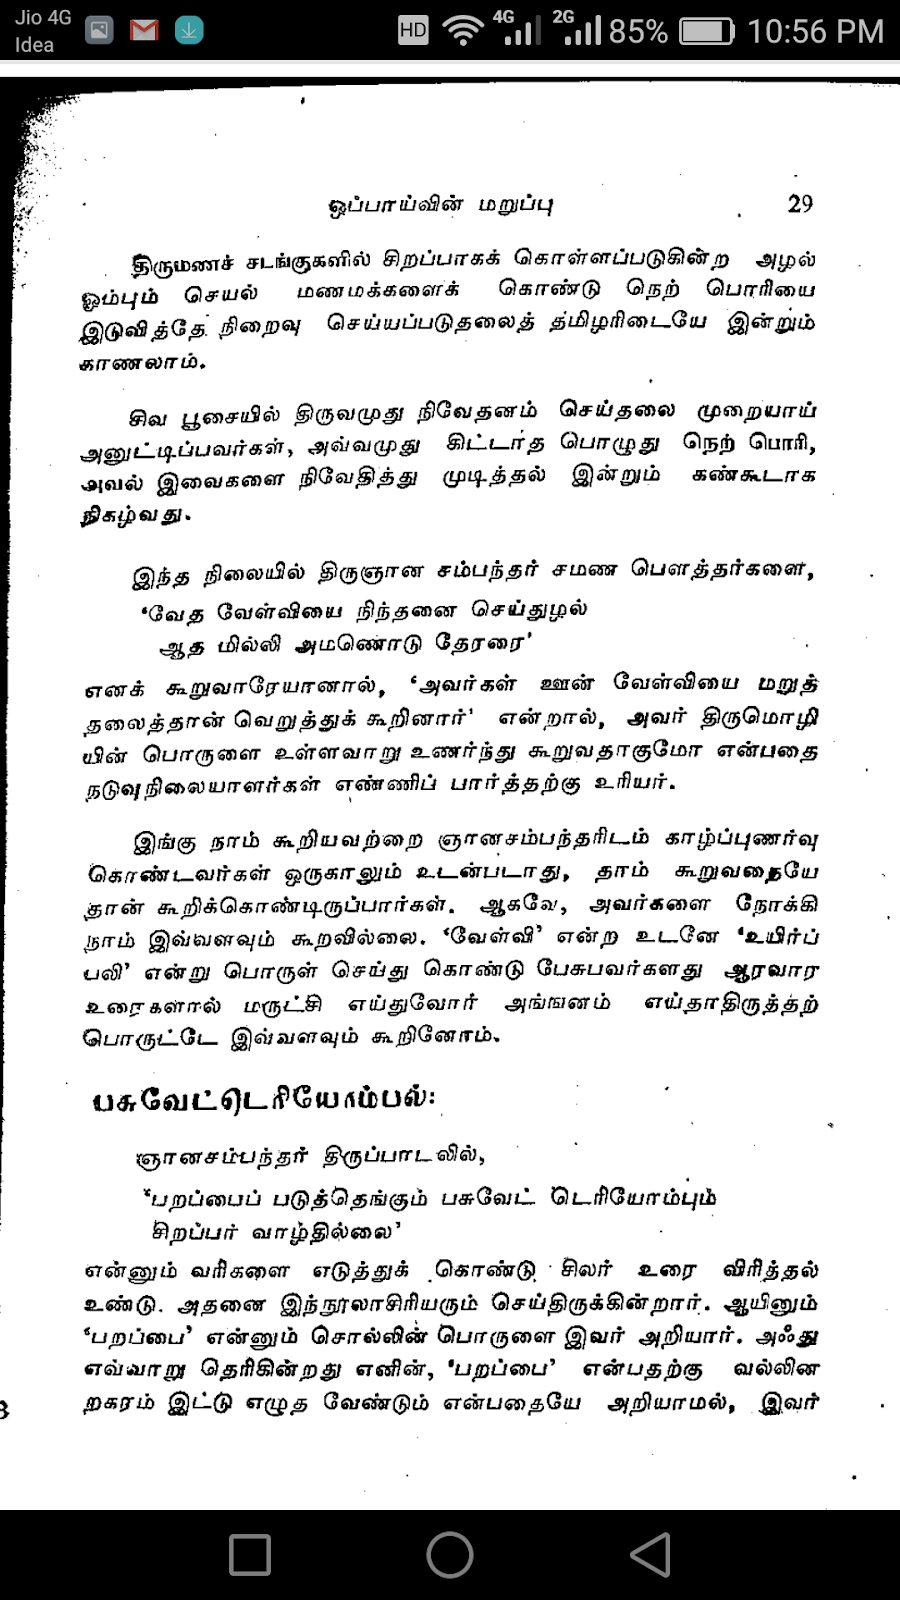 Jio 4G
Idea
HD
4G
2G
85%
10:56 PM
ஒப்பாய்வின் மறுப்பு 29
திருமணச் சடங்குகளில் சிறப்பாகக் கொள்ளப்படுகின்ற அழல்
ஓம்பும் செயல் மணமக்களைக் கொண்டு நெற் பொரியை
இடுவித்தே நிறைவு செய்யப்படுதலைத் தமிழரிடையே இன்றும்
காணலாம்.
சிவ பூசையில் திருவமுது நிவேதனம் செய்தலை முறையாய்
அனுட்டிப்பவர்கள், அவ்வமுது கிட்டாத பொழுது நெற் பொரி,
அவல் இவைகளை நிவேதித்து முடித்தல் இன்றும் கண்கூடாக
நிகழ்வது.
இந்த நிலையில் திருஞான சம்பந்தர் சமண பௌத்தர்களை,
‘வேத வேள்வியை நிந்தனை செய்துழல்
ஆத மில்லி அமணொடு தேரரை’
எனக் கூறுவாரேயானால், ‘அவர்கள் ஊன் வேள்வியை மறுத்
தலைத்தான் வெறுத்துக் கூறினார்’ என்றால், அவர் திருமொழி
யின் பொருளை உள்ளவாறு உணர்ந்து கூறுவதாகுமோ என்பதை
நடுவுநிலையாளர்கள் எண்ணிப் பார்த்தற்கு உரியர்.
இங்கு நாம் கூறியவற்றை ஞானசம்பந்தரிடம் காழ்ப்புணர்வு
கொண்டவர்கள் ஒருகாலும் உடன்படாது, தாம் கூறுவதையே
தான் கூறிக்கொண்டிருப்பார்கள். ஆகவே, அவர்களை நோக்கி
நாம் இவ்வளவும் கூறவில்லை. ‘வேள்வி’ என்ற உடனே ‘உயிர்ப்
பலி’ என்று பொருள் செய்து கொண்டு பேசுபவர்களது ஆரவார
உரைகளால் மருட்சி எய்துவோர் அங்ஙனம் எய்தாதிருத்தற்
பொருட்டே இவ்வளவும் கூறினோம்.
பசுவேட்டெரியோம்பல்:
ஞானசம்பந்தர் திருப்பாடலில்,
‘பறப்பைப் படுத்தெங்கும் பசுவேட் டெரியோம்பும்
சிறப்பர் வாழ்தில்லை’
என்னும் வரிகளை எடுத்துக் கொண்டு சிலர் உரை விரித்தல்
உண்டு. அதனை இந்நூலாசிரியரும் செய்திருக்கின்றார். ஆயினும்
‘பறப்பை’ என்னும் சொல்லின் பொருளை இவர் அறியார். அஃது
எவ்வாறு தெரிகின்றது எனின், ‘பறப்பை’ என்பதற்கு வல்லின
றகரம் இட்டு எழுத வேண்டும் என்பதையே அறியாமல், இவர்